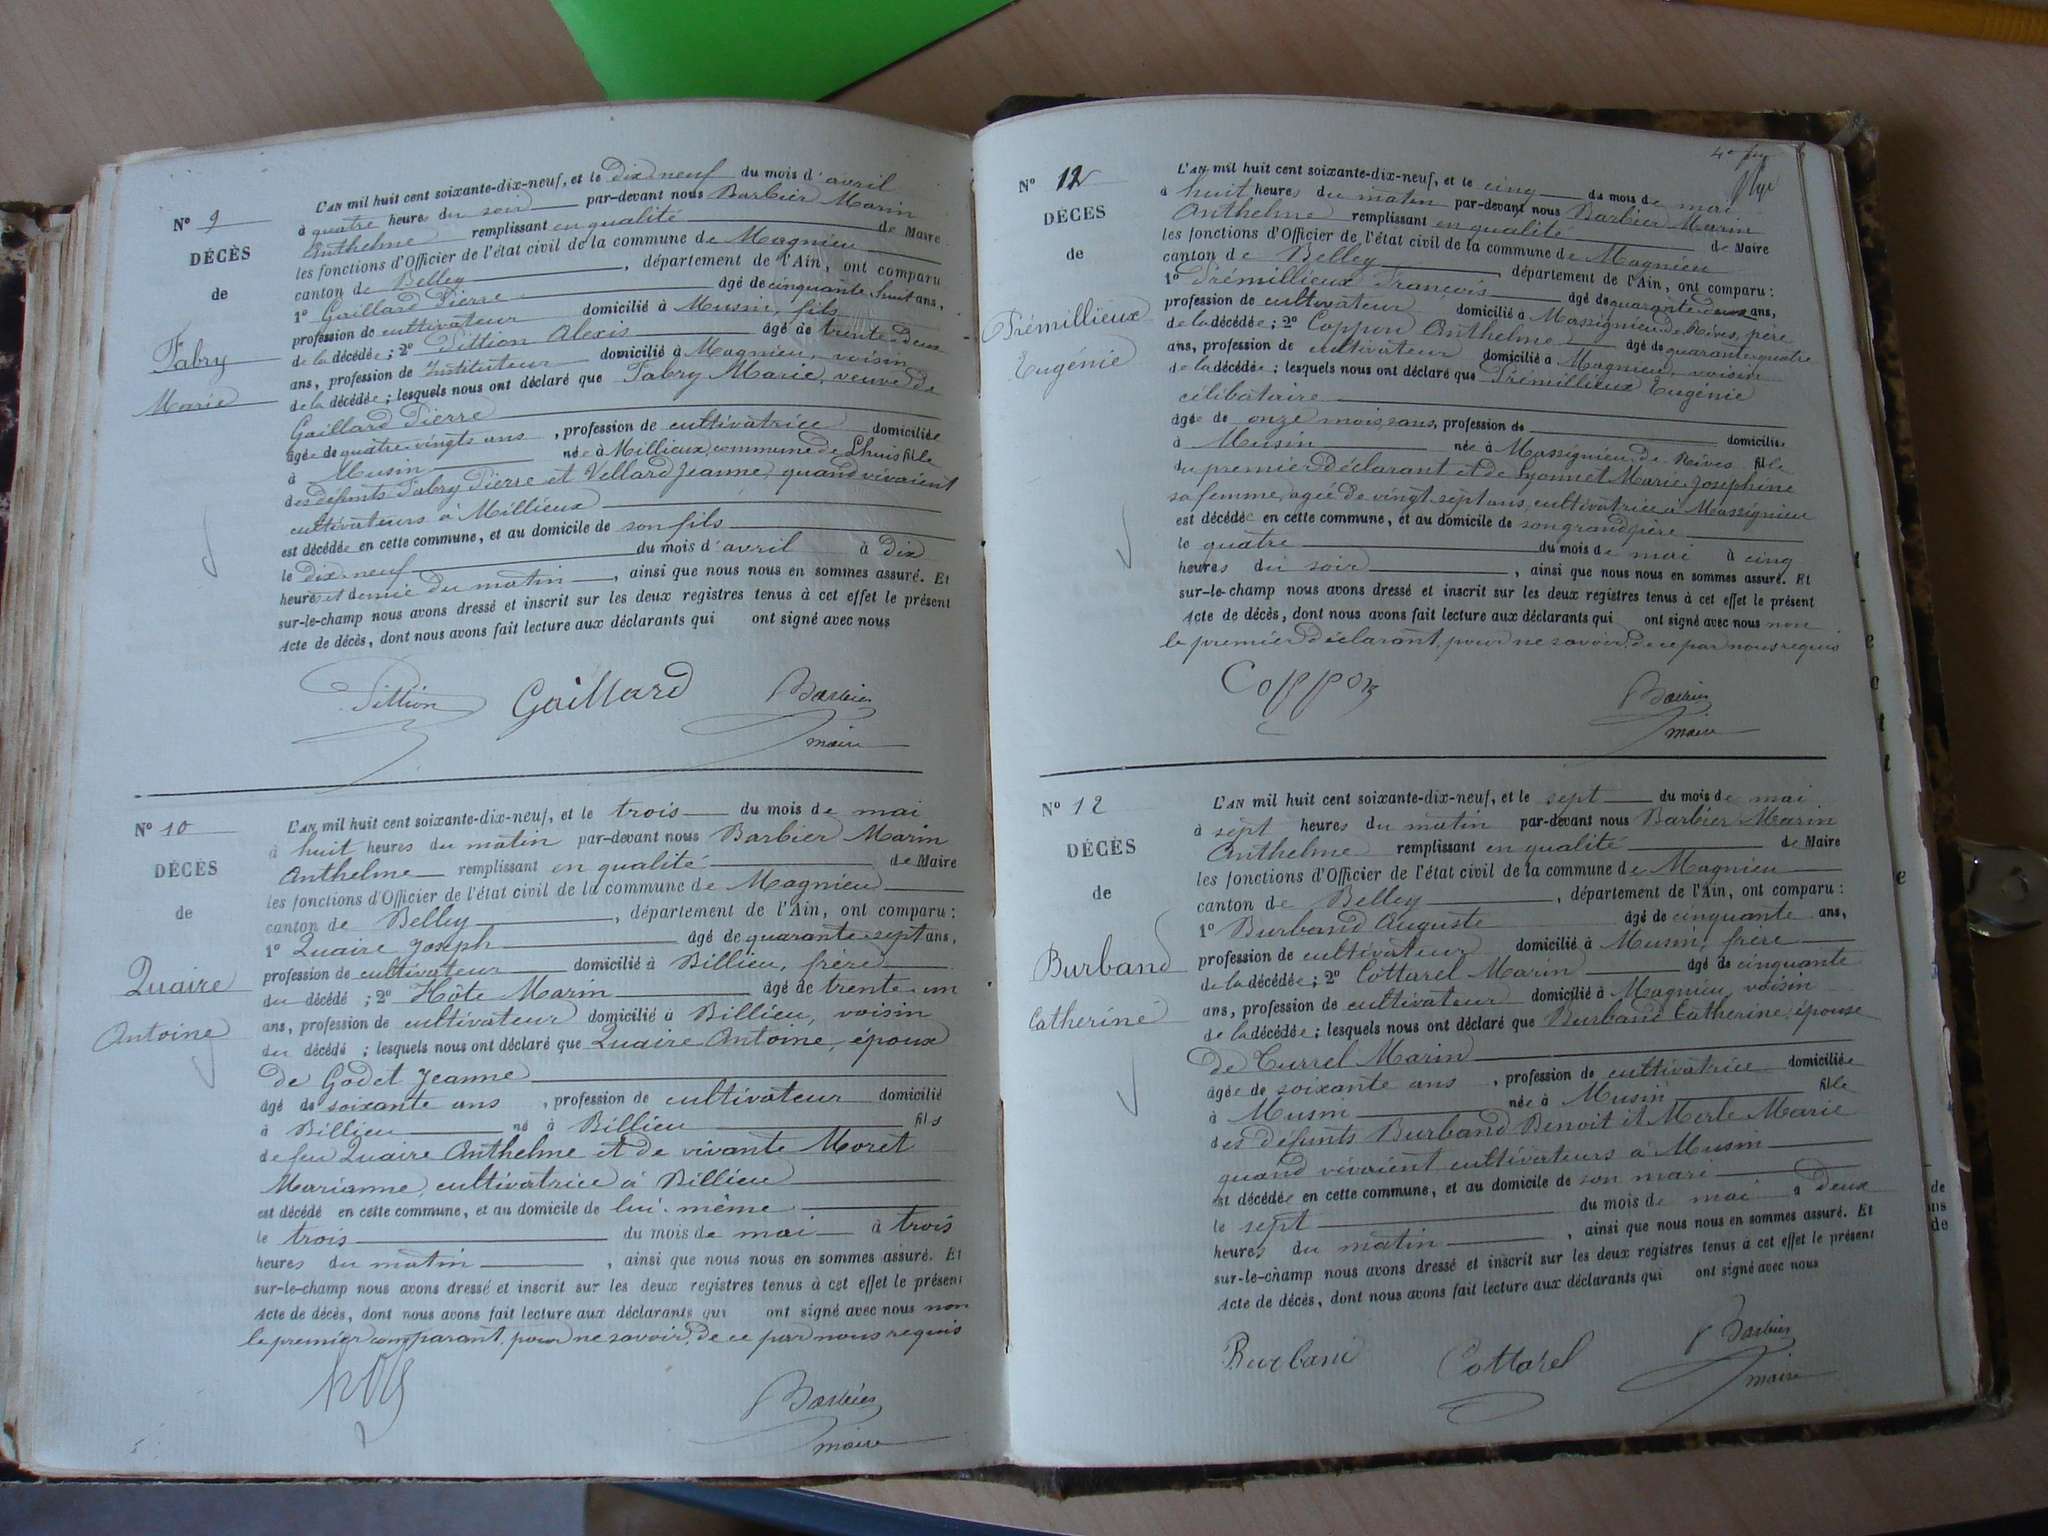 N° 9
DÉCÈS
de
Fabry
Marie
L'AN mil huit cent soixante-dix-neuf, et le dix-neuf du mois d'avril
à quatre heures du soir par-devant nous Barbier Marin
Anthelme remplissant en qualité de Maire
les fonctions d'Officier de l'état civil de la commune de Magnieu
canton de Belley, département de l'Ain, ont comparu
1° Gaillard Pierre agé de cinquante huit ans,
profession de cultivateur domicilié à Musin, fils
de la décédée; 2° Pittion Alexis agé de trente deux
ans, profession de Instituteur domicilié à Magnieu, voisin
de la décédée; lesquels nous ont déclaré que Fabry Marie, veuve de
Gaillard Pierre
agée de quatre vingts ans, profession de cultivatrice domiciliée
à Musin née à Millieux, commune de Lhuis fille
des défunts Fabry Pierre et Vellard Jeanne, quand vivaient
cultivateurs à Millieux
est décédée en cette commune, et au domicile de son fils
le dix-neuf du mois d'avril à dix
heures et demie du matin, ainsi que nous nous en sommes assuré. Et
sur-le-champ nous avons dressé et inscrit sur les deux registres tenus à cet effet le présent
Acte de décès, dont nous avons fait lecture aux déclarants qui ont signé avec nous
Pittion Gaillard Barbier
maire
N° 10
DÉCÈS
de
Quaire
Antoine
L'AN mil huit cent soixante-dix-neuf, et le trois du mois de mai
à huit heures du matin par-devant nous Barbier Marin
Anthelme remplissant en qualité de Maire
les fonctions d'Officier de l'état civil de la commune de Magnieu
canton de Belley, département de l'Ain, ont comparu :
1° Quaire Joseph agé de quarante-sept ans,
profession de cultivateur domicilié à Billieu, frère
du décédé ; 2° Hôte Marin agé de trente-un
ans, profession de cultivateur domicilié à Billieu, voisin
du décédé ; lesquels nous ont déclaré que Quaire Antoine, époux
de Godet Jeanne
agé de soixante ans, profession de cultivateur domicilié
à Billieu né à Billieu fils
de feu Quaire Anthelme et de vivante Moret
Marianne, cultivatrice à Billieu
est décédé en cette commune, et au domicile de lui-même
le trois du mois de mai à trois
heures du matin, ainsi que nous nous en sommes assuré. Et
sur-le-champ nous avons dressé et inscrit sur les deux registres tenus à cet effet le présent
Acte de décès, dont nous avons fait lecture aux déclarants qui ont signé avec nous non
le premier comparant, pour ne savoir, de ce par nous requis
Barbier
maire
N° 12
DÉCÈS
de
Trémillieux
Eugénie
L'AN mil huit cent soixante-dix-neuf, et le cinq du mois de mai
à huit heures du matin par-devant nous Barbier Marin
Anthelme remplissant en qualité de Maire
les fonctions d'Officier de l'état civil de la commune de Magnieu
canton de Belley, département de l'Ain, ont comparu :
1° Trémillieux François agé de quarante deux ans,
profession de cultivateur domicilié à Massignieu de Rives, père
de la décédée; 2° Coppon Anthelme agé de quarante-quatre
ans, profession de cultivateur domicilié à Magnieu, voisin
de la décédée; lesquels nous ont déclaré que Trémillieux Eugénie
célibataire
agée de onze mois ans, profession de domiciliée
à Musin née à Massignieu-de-Rives fille
du premier déclarant et de Lyonnet Marie Joséphine
sa femme, agée de vingt-sept ans, cultivatrice à Massignieu
est décédée en cette commune, et au domicile de son grand père
le quatre du mois de mai à cinq
heures du soir, ainsi que nous nous en sommes assuré. Et
sur-le-champ nous avons dressé et inscrit sur les deux registres tenus à cet effet le présent
Acte de décès, dont nous avons fait lecture aux déclarants qui ont signé avec nous non
le premier déclarant, pour ne savoir, de ce par nous requis
Coppon Barbier
maire
N° 12
DÉCÈS
de
Burband
Catherine
L'AN mil huit cent soixante-dix-neuf, et le sept du mois de mai
à sept heures du matin par-devant nous Barbier Marin
Anthelme remplissant en qualité de Maire
les fonctions d'Officier de l'état civil de la commune de Magnieu
canton de Belley, département de l'Ain, ont comparu :
1° Burband Auguste âgé de cinquante ans,
profession de cultivateur domicilié à Musin, frère
de la décédée; 2° Cottarel Marin agé de cinquante
ans, profession de cultivateur domicilié à Magnieu, voisin
de la décédée; lesquels nous ont déclaré que Burband Catherine, épouse
de Currel Marin
agée de soixante ans, profession de cultivatrice domiciliée
à Musin née à Musin fille
des défunts Burband Benoit et Merle Marie
quand vivaient cultivateurs à Musin
est décédée en cette commune, et au domicile de son mari
le sept du mois de mai à deux
heures du matin, ainsi que nous nous en sommes assuré. Et
sur-le-champ nous avons dressé et inscrit sur les deux registres tenus à cet effet le présent
Acte de décès, dont nous avons fait lecture aux déclarants qui ont signé avec nous
Burband Cottarel Barbier
maire